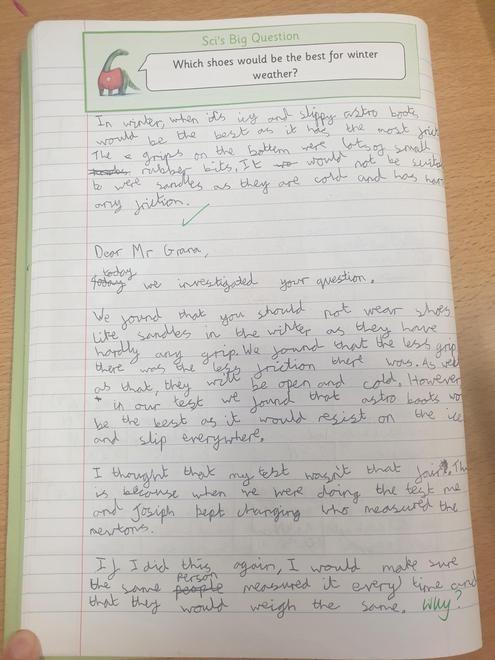 Sci's Big Question
Which shoes would be the best for winter
weather?
In winter, when it's icy and slippy astro boots
would be the best as it has the most
The grips on the bottom were lots of small
rubber bits. It would not be
to were sandles as they are cold and has
any friction.
Dear Mr Grana,
today
we investigated your question.
We found that you should not wear shoes
like sandles in the winter as they have
hardly any grip. We found that the less grip
there was the less friction there was. As well
as that, they will be open and cold. However
in our test we found that astro boots
be the best as it would resist on the ice
and slip everywhere.
I thought that my test wasn't that fair.
is because when we were doing the test me
and Josiph kept changing who measured the
newtons.
If I did this again, I would make sure
the same person measured it every time and
that they would weigh the same. Why?